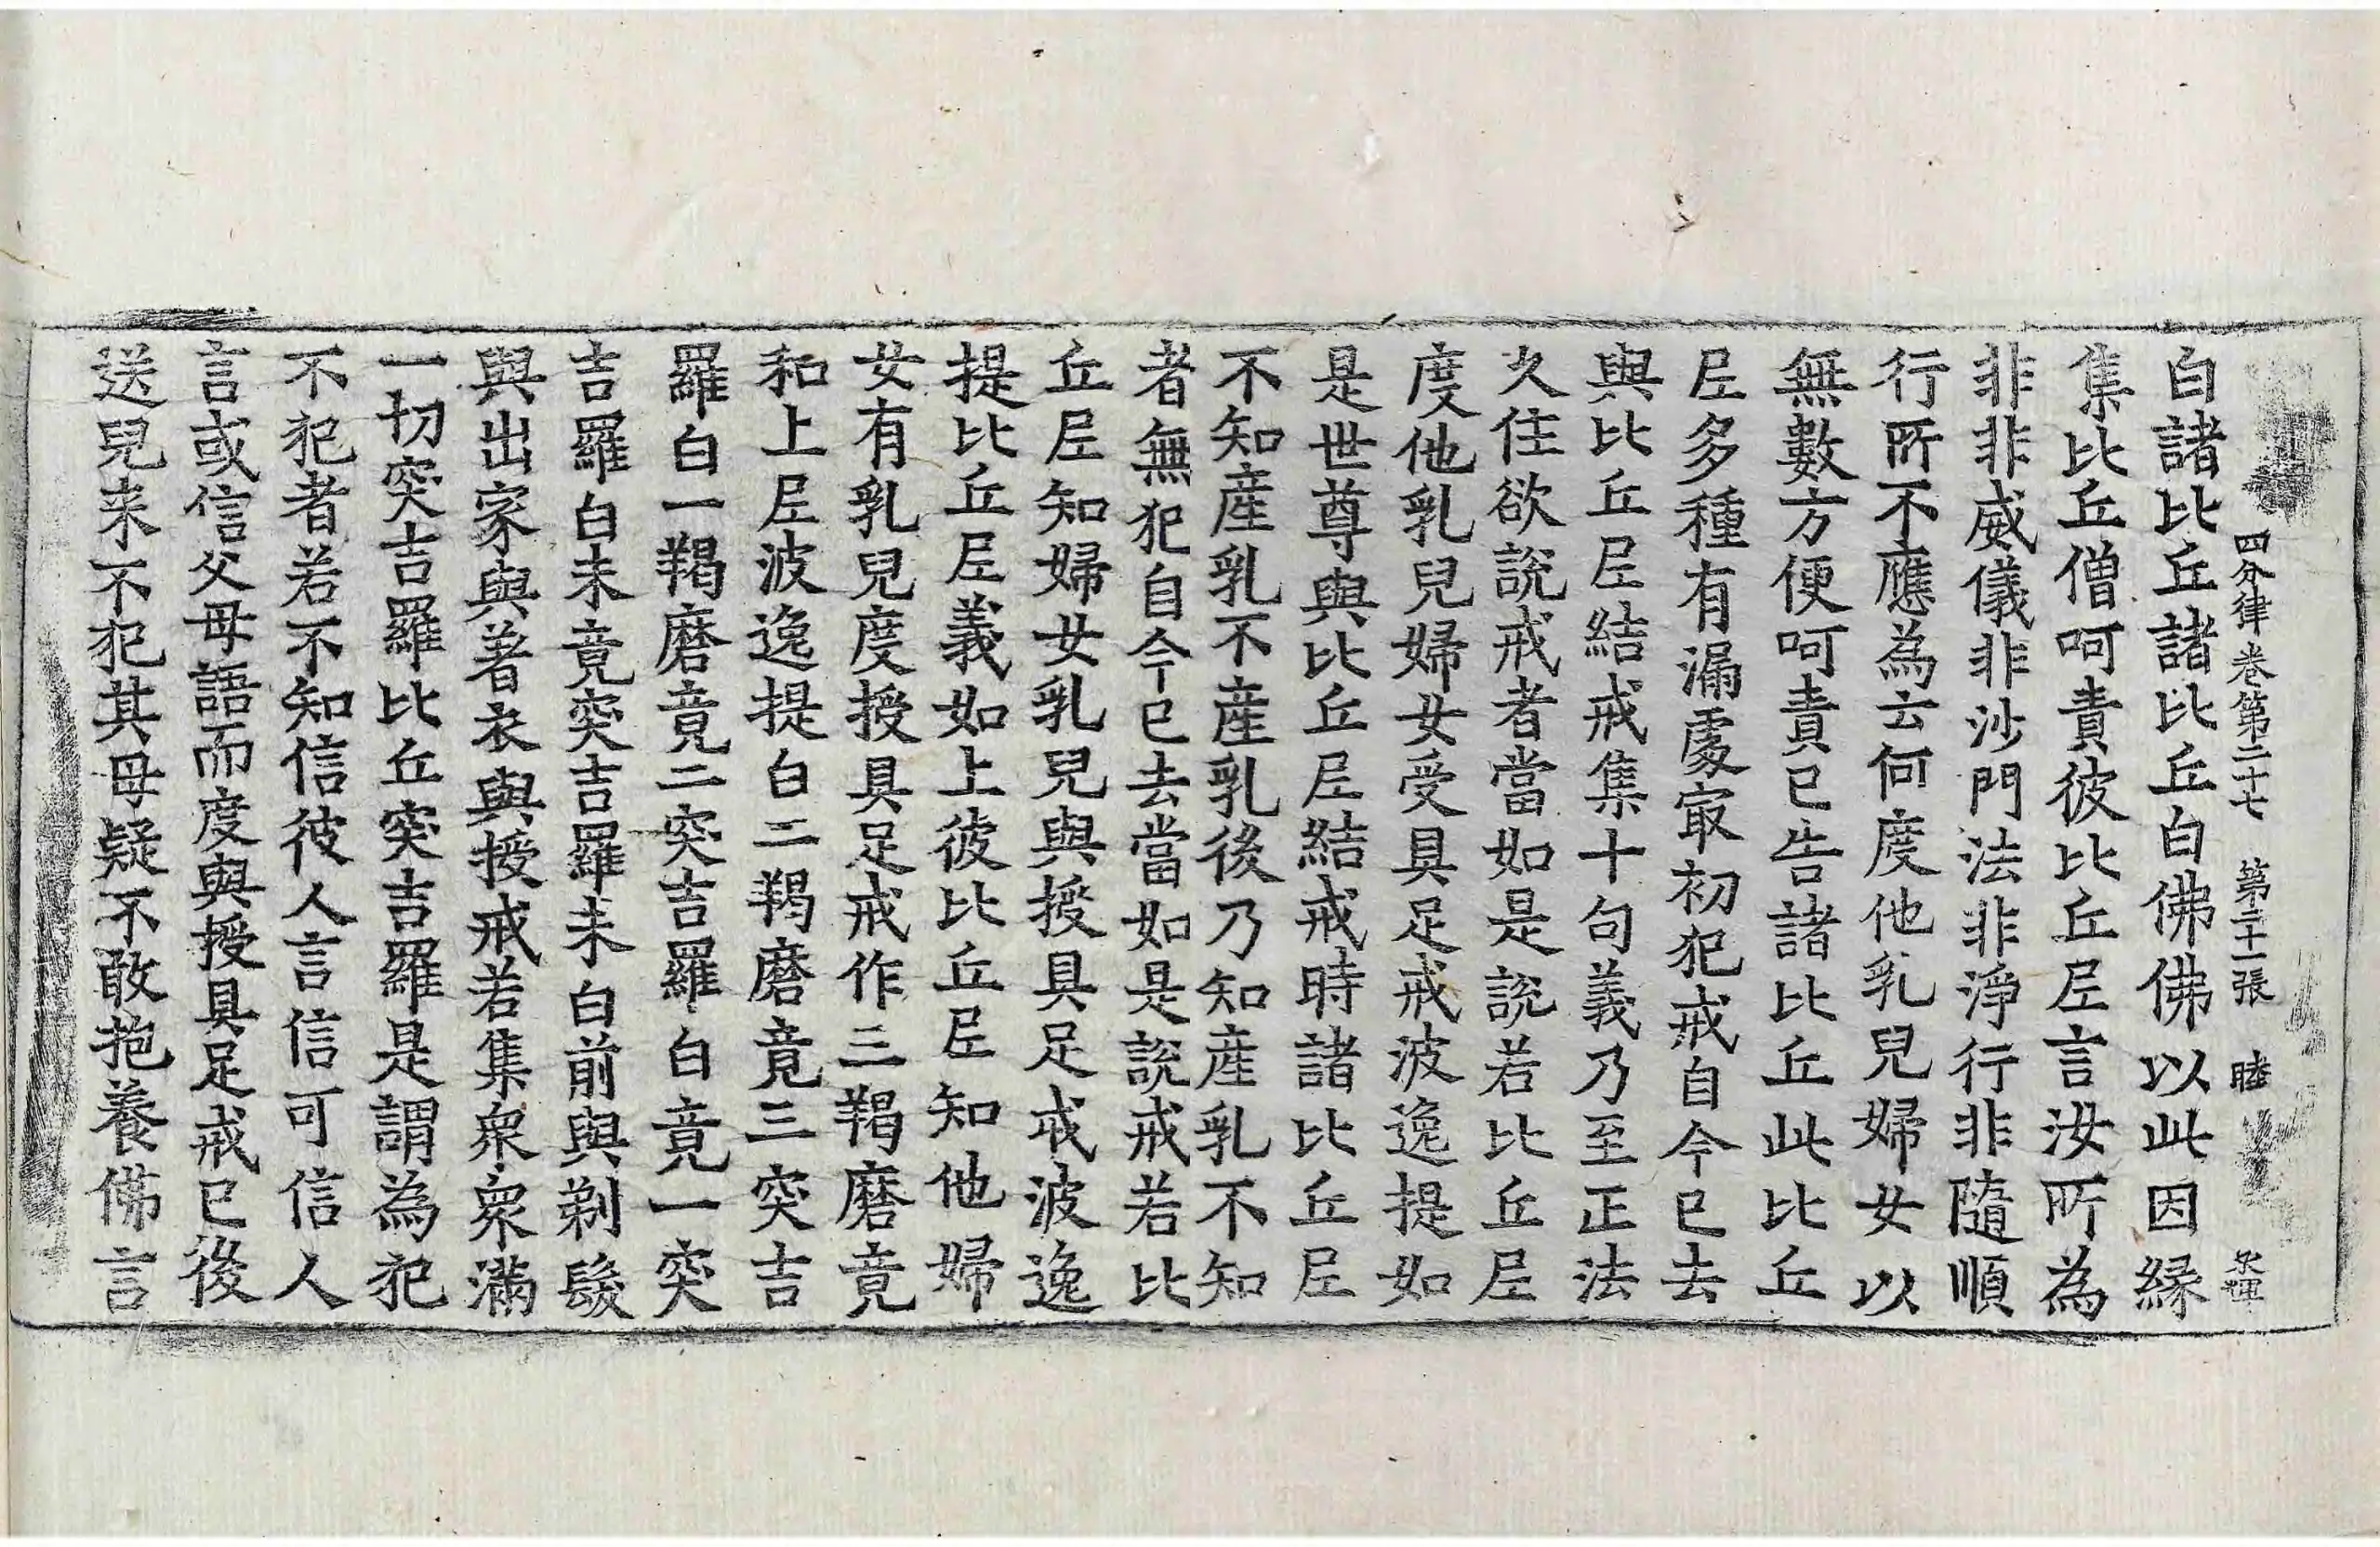 四分律卷第二十七　第二十一張　睦
白諸比丘諸比丘白佛佛以此因緣
集比丘僧呵責彼比丘尼言汝所為
非非威儀非沙門法非淨行非隨順
行所不應為云何度他乳兒婦女以
無數方便呵責已告諸比丘此比丘
尼多種有漏處㝡初犯戒自今已去
與比丘尼結戒集十句義乃至正法
久住欲說戒者當如是說若比丘尼
度他乳兒婦女受具足戒波逸提如
是世尊與比丘尼結戒時諸比丘尼
不知産乳不産乳後乃知産乳不知
者無犯自今已去當如是說戒若比
丘尼知婦女乳兒與授具足戒波逸
提比丘尼義如上彼比丘尼知他婦
女有乳兒度授具足戒作三羯磨竟
和上尼波逸提白二羯磨竟三突吉
羅白一羯磨竟二突吉羅白竟一突
吉羅白未竟突吉羅未白前與剃髮
與出家與著衣與授戒若集衆衆滿
一切突吉羅比丘突吉羅是謂為犯
不犯者若不知信彼人言信可信人
言或信父母語而度與授具足戒已後
送兒来不犯其母疑不敢抱養佛言